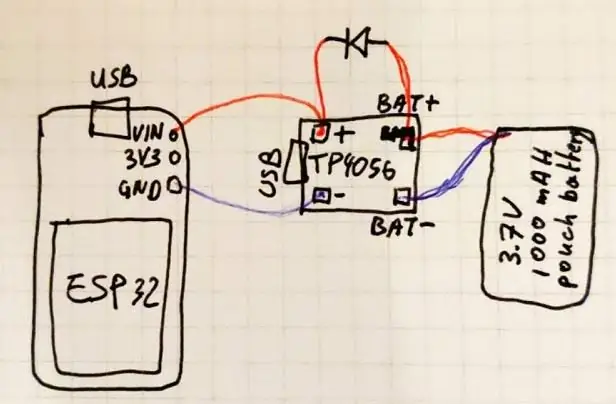 USB
VIN
3V3
GND
ESP32
USB
+
TP4056
-
BAT+
BAT-
3.7V
1000 mAH
pouch battery